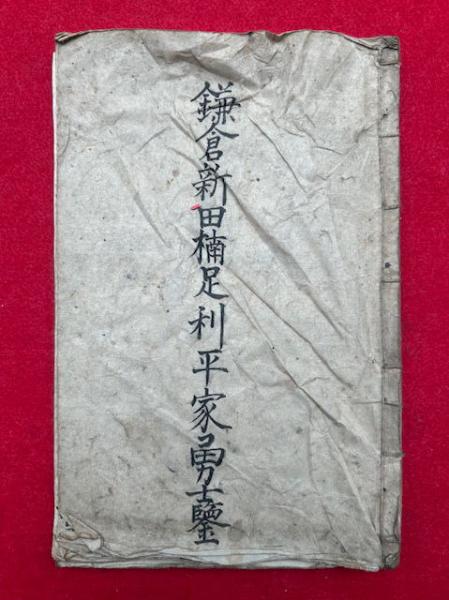 鎌倉新田楠足利平家勇士鑒